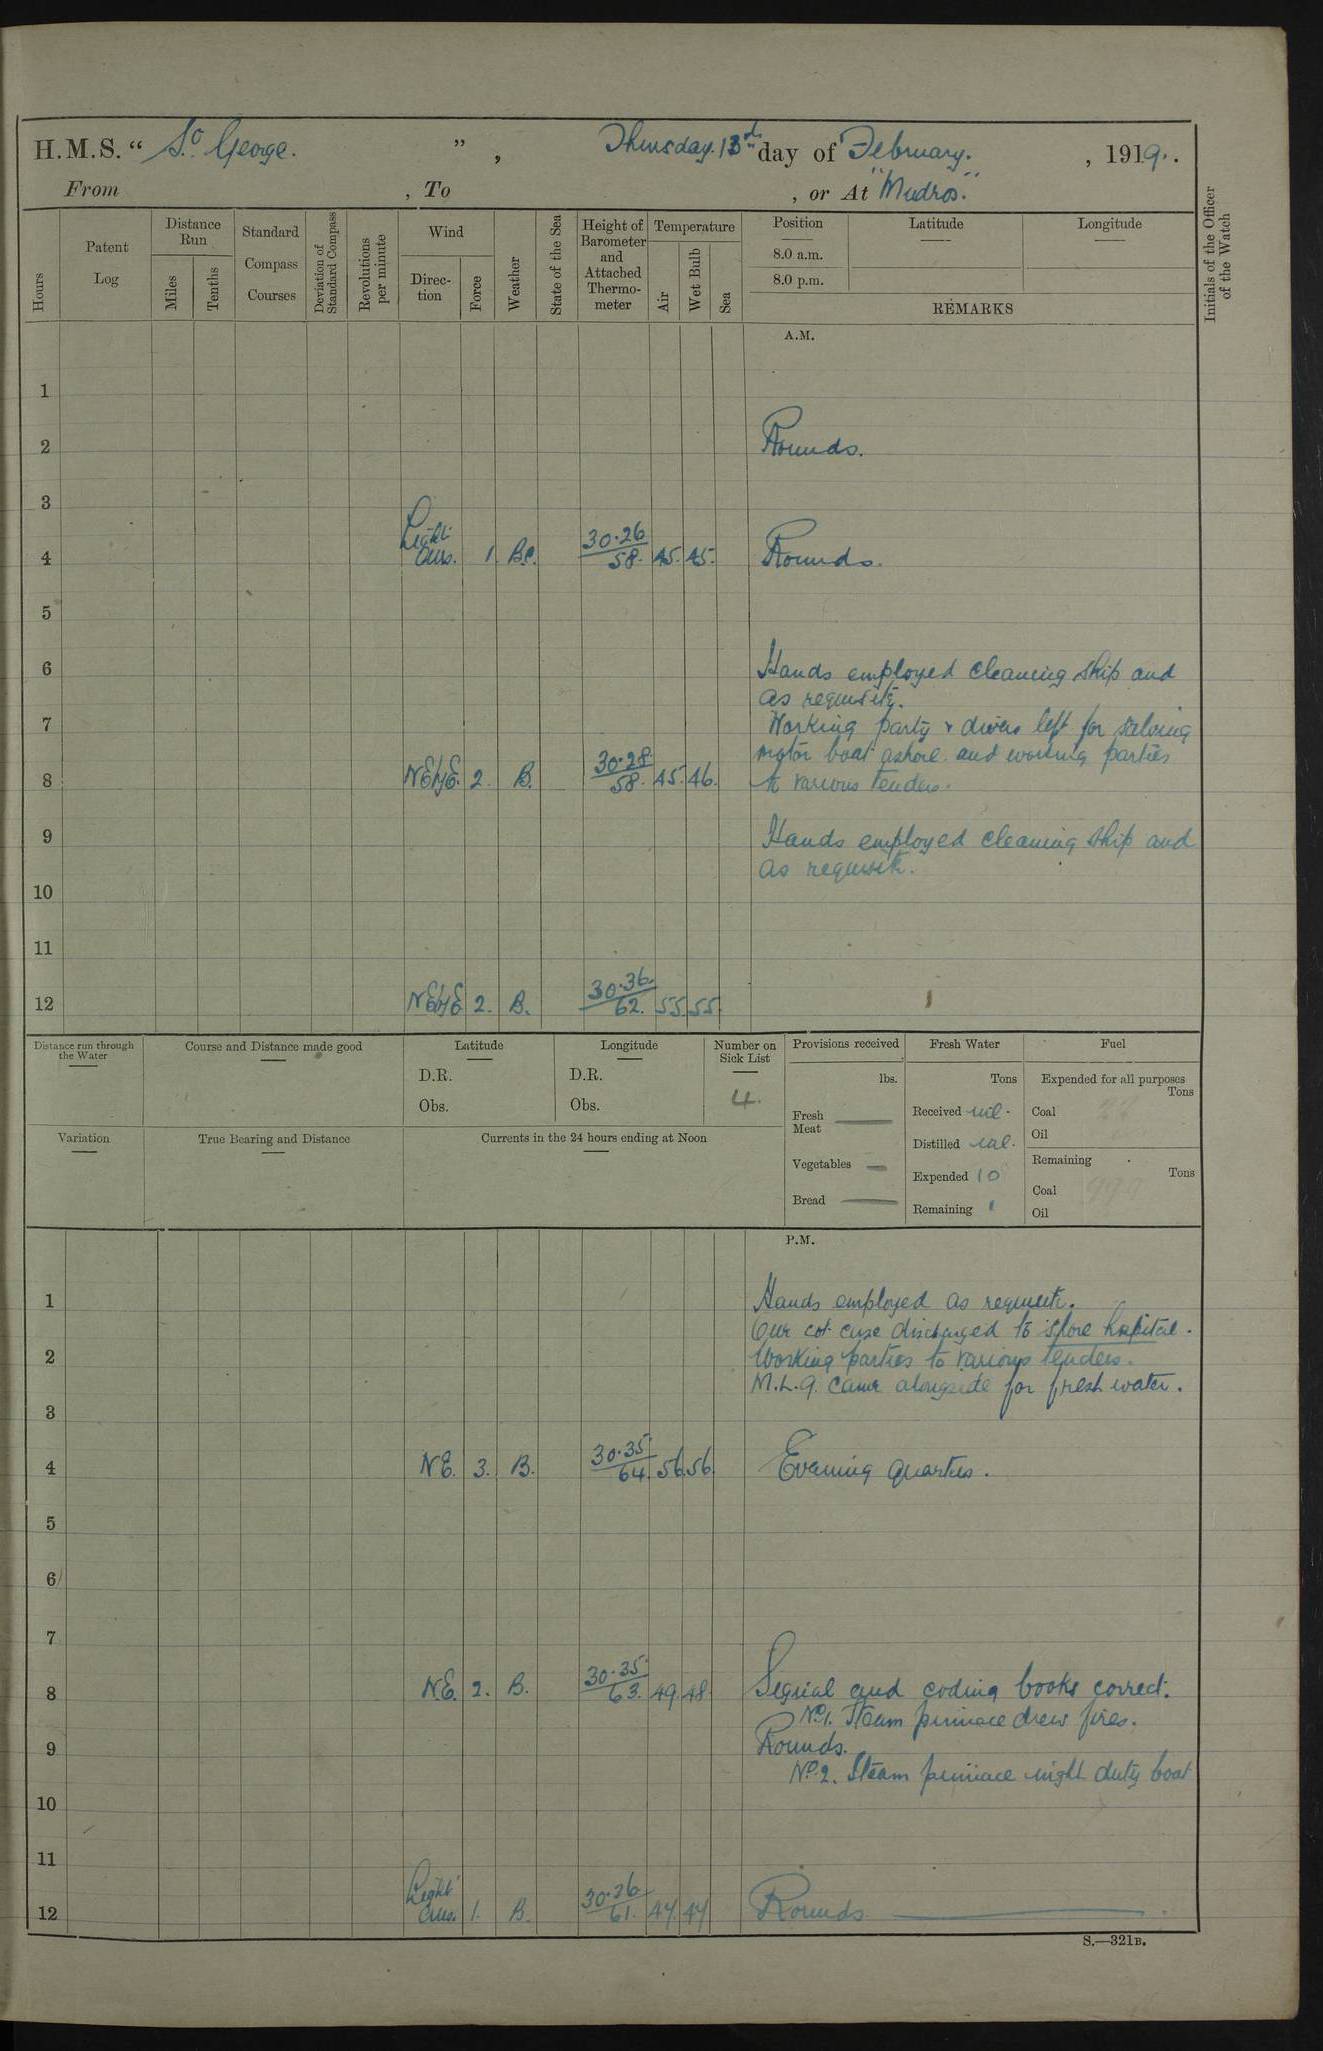 H.M.S. “ St. George. ” , Thursday. 13th day of February. , 1919.
From , To , or At "Mudros."
Hours
Patent Log
Distance Run
Miles
Tenths
Standard Compass Courses
Deviation of Standard Compass
Revolutions per minute
Wind
Direction
Force
Weather
State of the Sea
Height of Barometer and Attached Thermometer
Temperature
Air
Wet Bulb
Sea
Position
8.0 a.m.
8.0 p.m.
Latitude
Longitude
REMARKS
Initials of the Officer of the Watch
A.M.
1
2 Rounds.
3
4 Light airs. 1. B.C. 30.26 58. 45. 45. Rounds.
5
6 Hands employed cleaning ship and
as requisite.
7 Working party & divers left for salving
motor boat ashore and working parties
8 NE by E. 2. B. 30.28 58. 45. 46. to various tenders.
9 Hands employed cleaning ship and
as requisite.
10
11
12 NE by E 2. B. 30.36. 62. 55. 55.
Distance run through the Water
Course and Distance made good
Latitude
D.R.
Obs.
Longitude
D.R.
Obs.
Number on Sick List
4.
Variation
True Bearing and Distance
Currents in the 24 hours ending at Noon
Provisions received
lbs.
Fresh Meat —
Vegetables —
Bread —
Fresh Water
Tons
Received nil.
Distilled
Expended 10
Remaining
Fuel
Expended for all purposes
Tons
Coal
Oil
Remaining
Tons
Coal
Oil
P.M.
1 Hands employed as requisite.
cot case discharged to shore hospital.
2 Working parties to various tenders.
M.L. 9. came alongside for fresh water.
3
4 NE. 3. B. 30.35 64. 56. 56. Evening quarters.
5
6
7
8 NE. 2. B. 30.35 63. 49. 48. Signal and coding books correct.
No. 1. Steam pinnace drew fires.
9 Rounds.
No. 2. Steam pinnace night duty boat
10
11
12 Light airs. 1. B. 61. 47. 47 Rounds.
S.—321B.